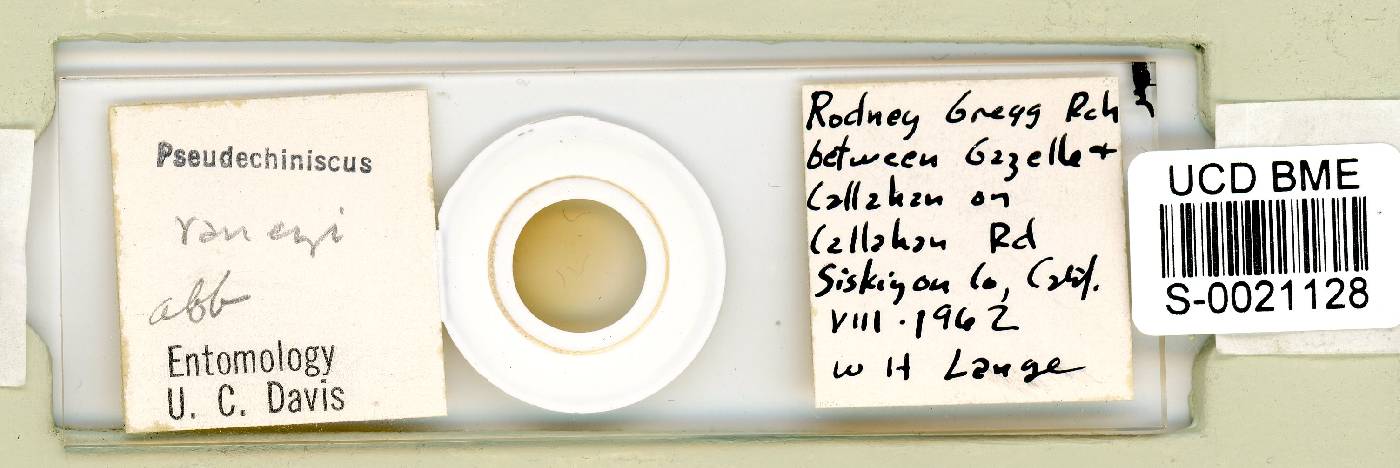 Pseudechiniscus
raneyi
abb
Entomology
U. C. Davis
Rodney Gregg Rch
between Gazelle +
Callahan on
Callahan Rd
Siskiyou Co, Calif.
VIII · 1962
W H Lange
UCD BME
S-0021128